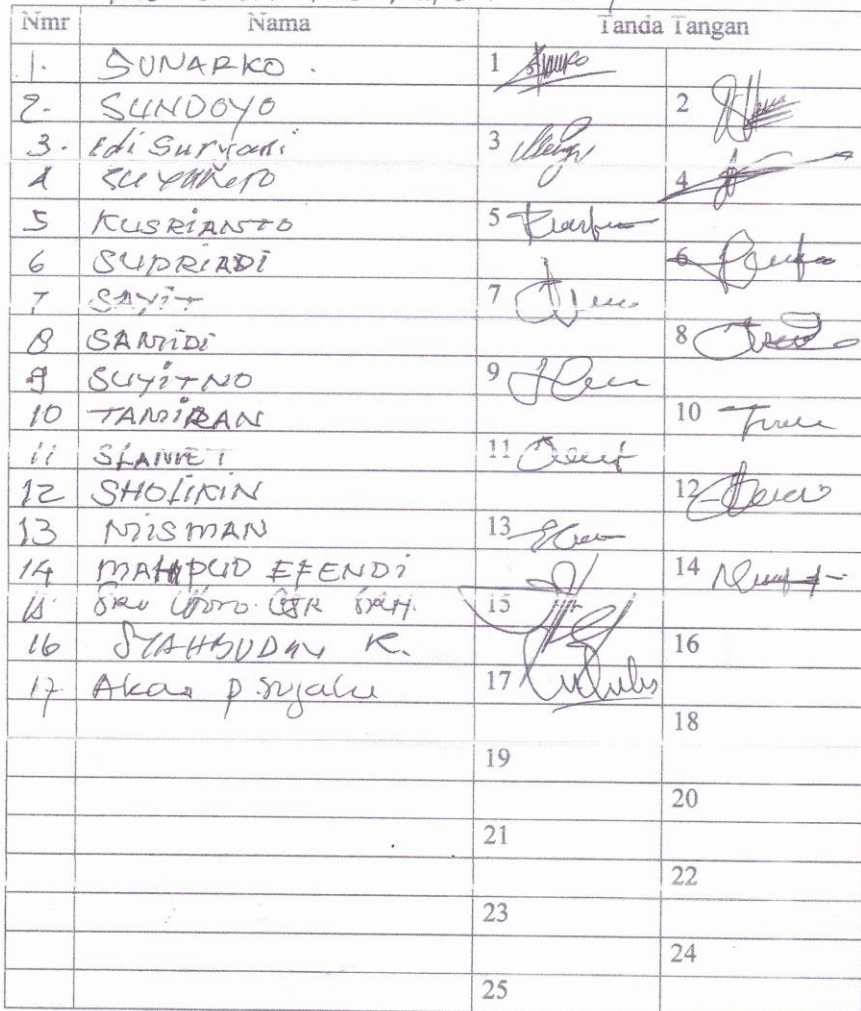 Nmr Nama Tanda Tangan
1. SUNARKO. 1
2. SUNDOYO 2
3. Edi Suryani 3
4 SUYANTO 4
5 KUSRIANTO 5
6 SUPRIADI 6
7 SAYIT 7
8 SAMIDI 8
9 SUYITNO 9
10 TAMIRAN 10
11 SLAMET 11
12 SHOLIKIN 12
13 MISMAN 13
14 MAHPUD EFENDI 14
15. 15
16 SYAHBUDIN K. 16
17. Akas P. Sujalu 17
18
19
20
21
22
23
24
25